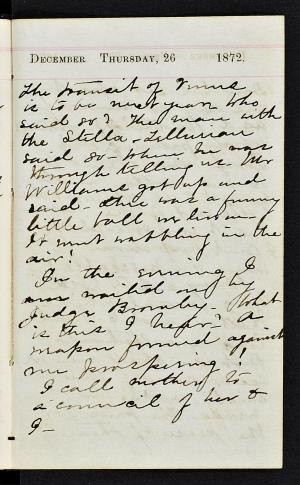 DECEMBER THURSDAY, 26 1872.
The transit of Venus
is to be next year. Who
said so? The man with
the Stella-Tellurian
said so - when he was
through telling us. Mr
Williams got up and
said - there was a funny
little ball
It went wabbling in the
air!
In the evening I
was waited on by
Judge Bromley. What
is this I hear? A
weapon formed against
me prospering!
I call mother to
a council of her &
I -